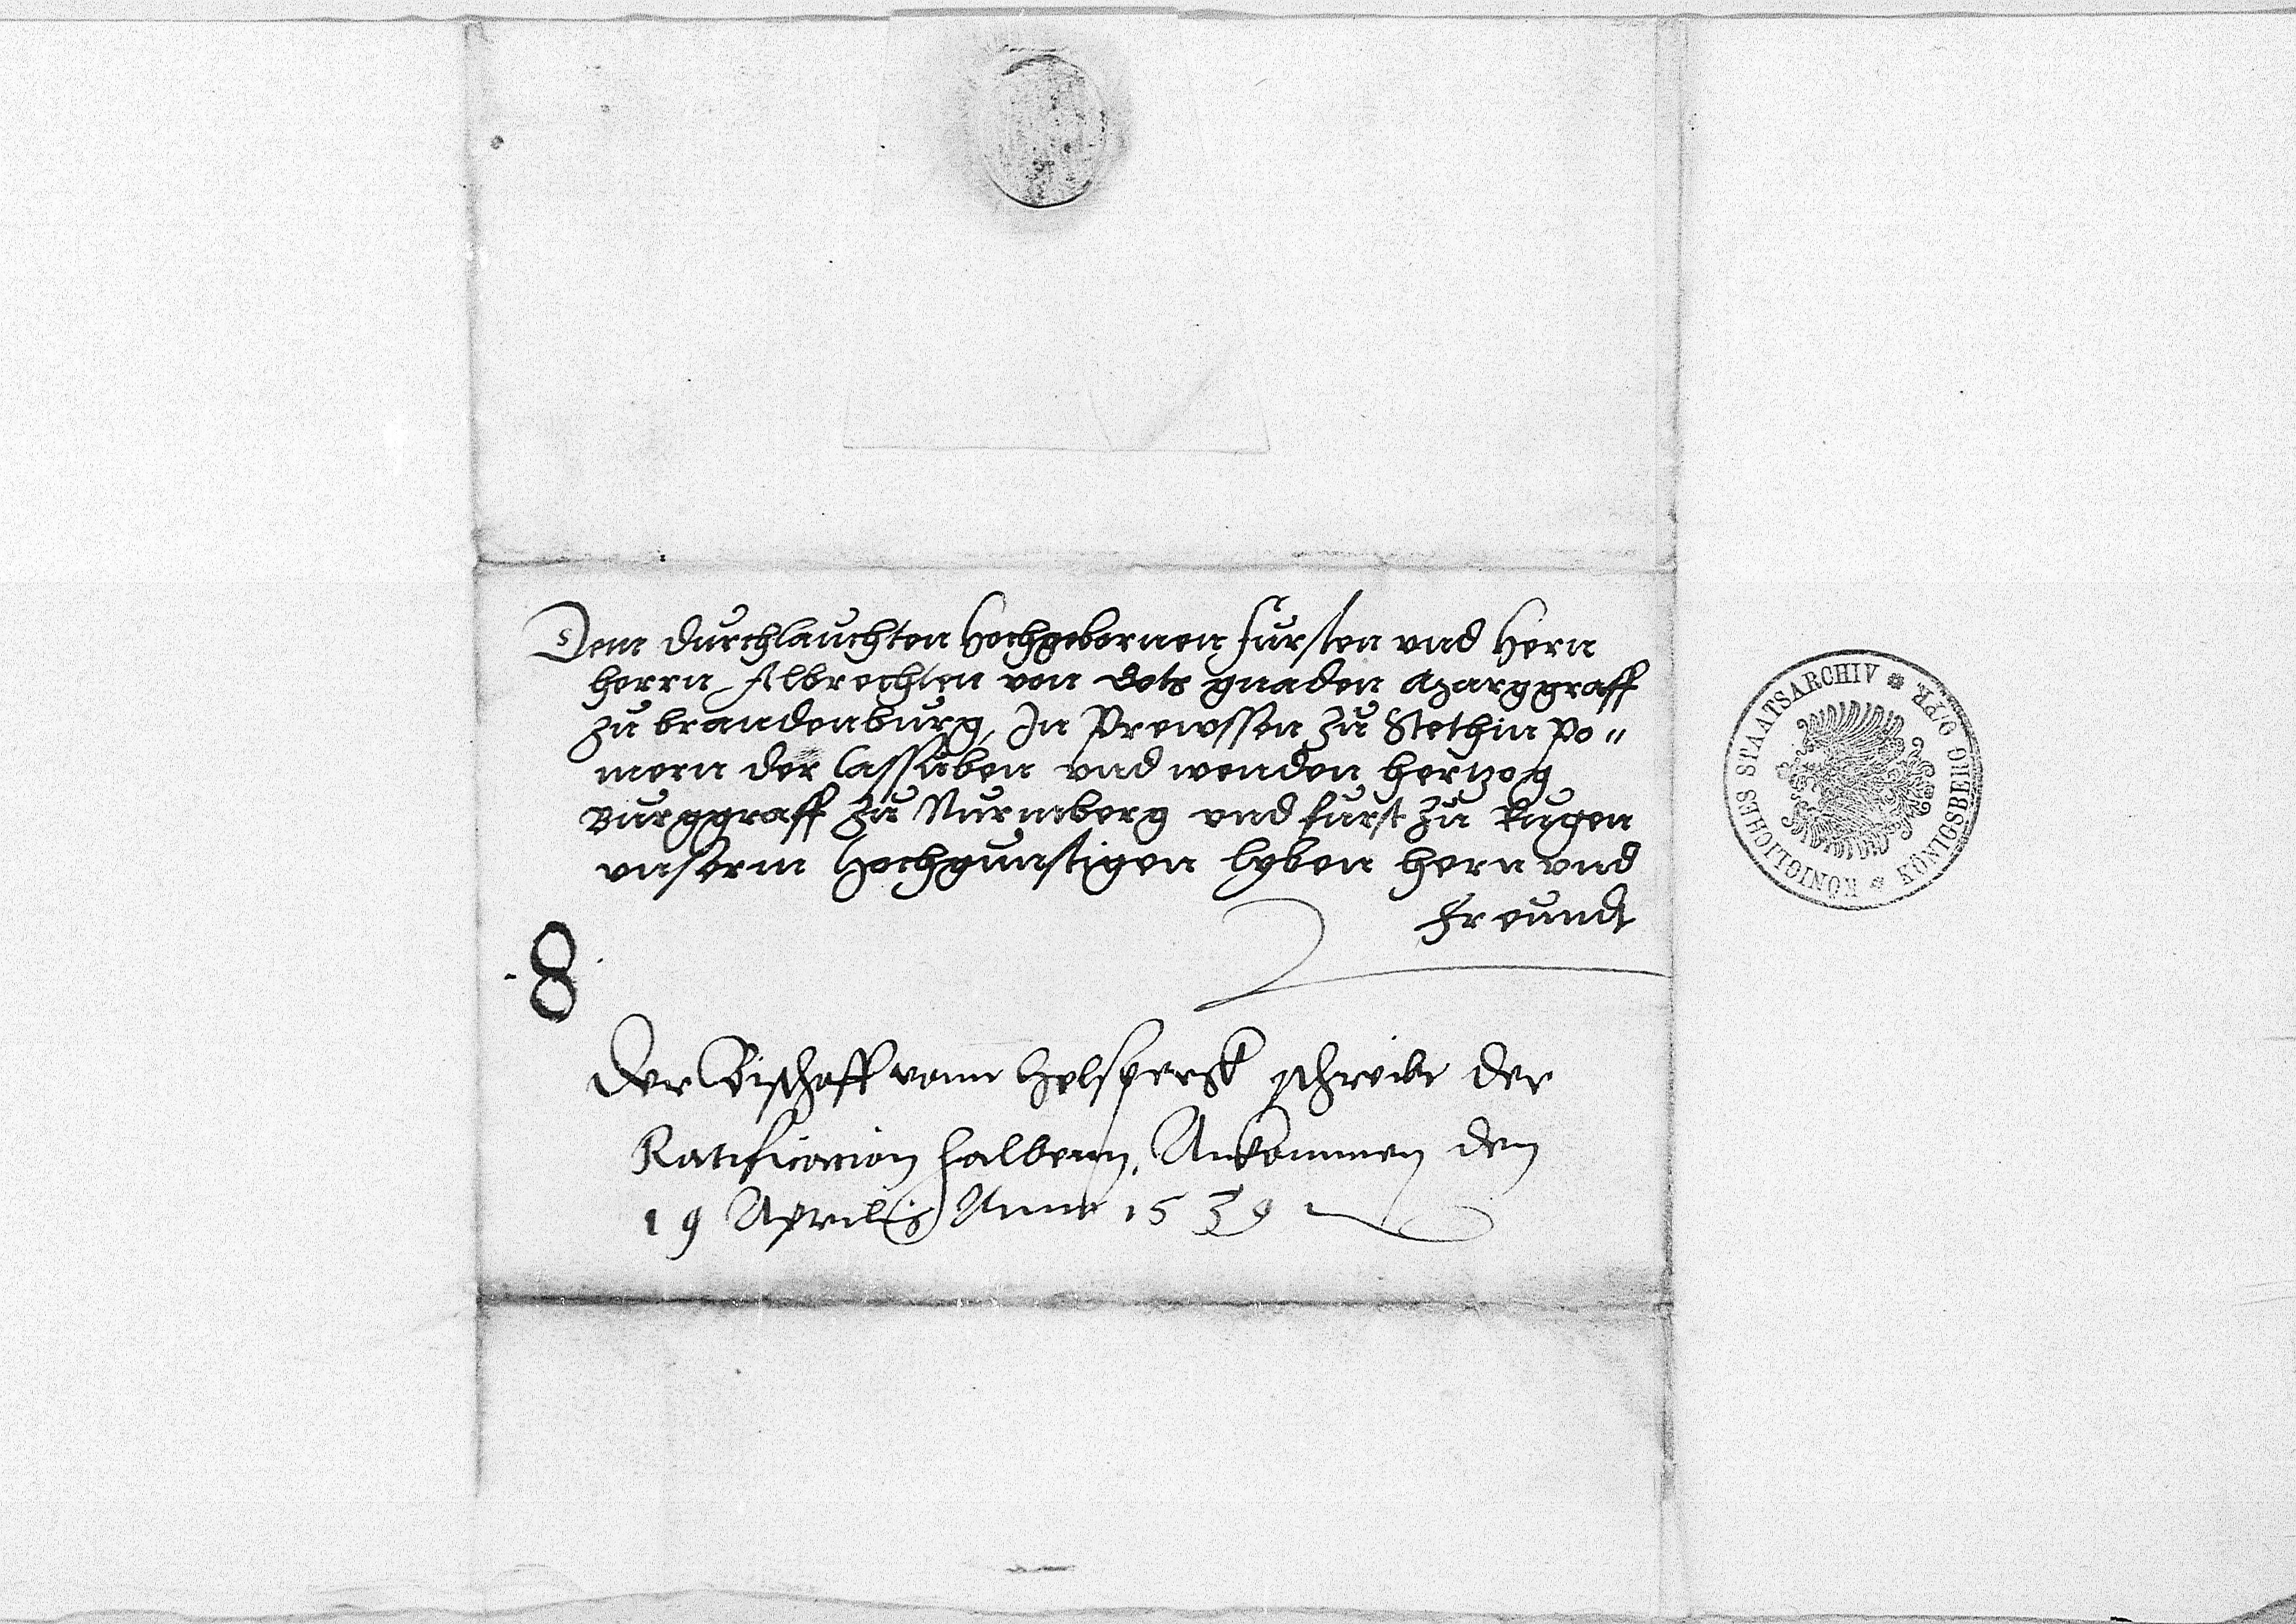 Dem durchlauchten Hochgebornen fursten vnd Hern
herrn Albrechten von Gots gnaden Marggraff
zu brandenburg, In Prewssen zu Stethin Po„
mern der Cassuben vnd wenden hertzog
Burggraff zu Nurmberg vnd furst zu Rugen
vnserm Hochgunstigen lyben hern vnd
freundt
8
Der Bischoff vonn schreibt der
Ratificacion halbenn, Ankommen den
19 Aprilis Anno 1539
KÖNIGLICHES STAATSARCHIV * KÖNIGSBERG O/PR. *